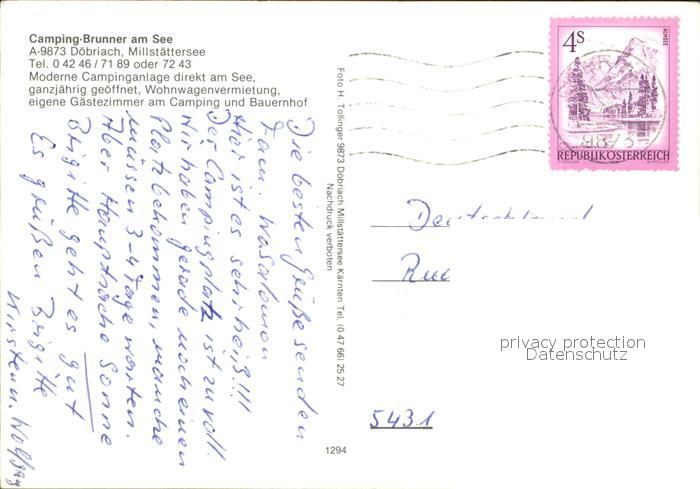 Camping-Brunner am See
A-9873 Döbriach, Millstättersee
Tel. 0 42 46 / 71 89 oder 72 43
Moderne Campinganlage direkt am See,
ganzjährig geöffnet, Wohnwagenvermietung,
eigene Gästezimmer am Camping und Bauernhof
Die besten Grüße senden
Fam.
Hier ist es sehr heiß!!!
Der Campingplatz ist zu voll.
Wir haben gerade noch einen
Platz bekommen, manche
müssen 3-4 Tage warten.
Aber Hauptsache Sonne
Brigitte geht es gut
Es grüßen Brigitte
Kirsten u. Wolfgang
Foto H. Tollinger 9873 Döbriach Millstättersee Kärnten Tel. (0 47 66) 25 27
Nachdruck verboten
1294
4S
ALMSEE
REPUBLIK ÖSTERREICH
9873
Deutschland
5431
privacy protection
Datenschutz